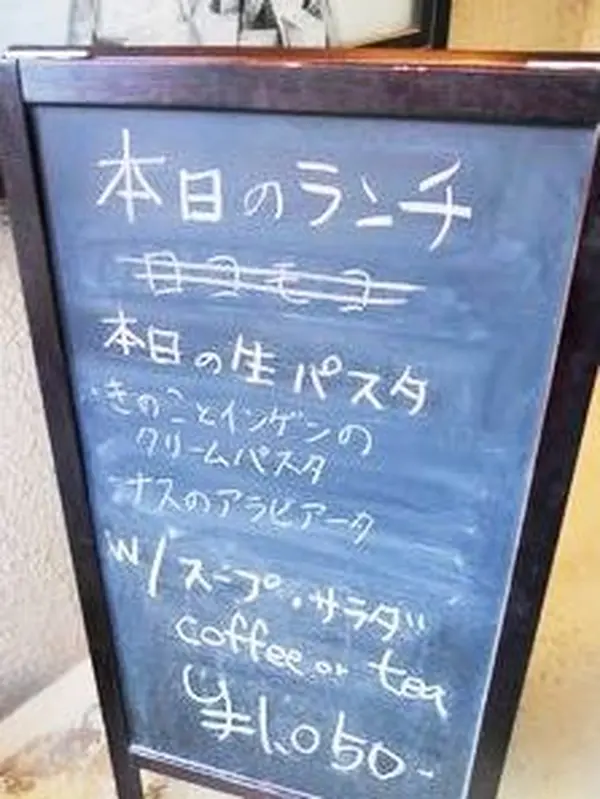 本日のランチ
ロコモコ
本日の生パスタ
・きのことインゲンの
クリームパスタ
・ナスのアラビアータ
W/スープ・サラダ
coffee or tea
¥1,050-